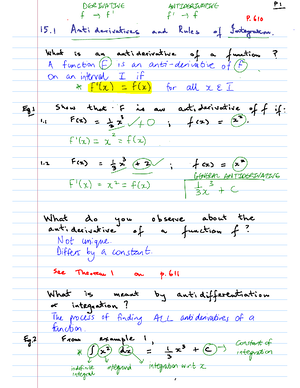 DERIVATIVE ANTIDERIVATIVE P1
f → f' f' → f
P. 610
15.1 Antiderivatives and Rules of Integration.
What is an antiderivative of a function ?
A function F is an anti-derivative of f
on an interval I if
* F'(x) = f(x) for all x ∈ I
Eg.1 Show that F is an antiderivative of f if:
1.1 F(x) = 1/3 x³ + 0 ; f(x) = x².
F'(x) = x² = f(x)
1.2 F(x) = 1/3 x³ + 2 ; f(x) = x²
GENERAL ANTIDERIVATIVE
F'(x) = x² = f(x) 1/3 x³ + C
What do you observe about the
antiderivative of a function f ?
Not unique.
Differs by a constant.
See Theorem 1 on p. 611
What is meant by antidifferentiation
or integration ?
The process of finding ALL antiderivatives of a
function
Eg.2 From example 1,
* ∫ x² dx = 1/3 x³ + C → constant of
integration
indefinite integrand integration w.r.t x
integral